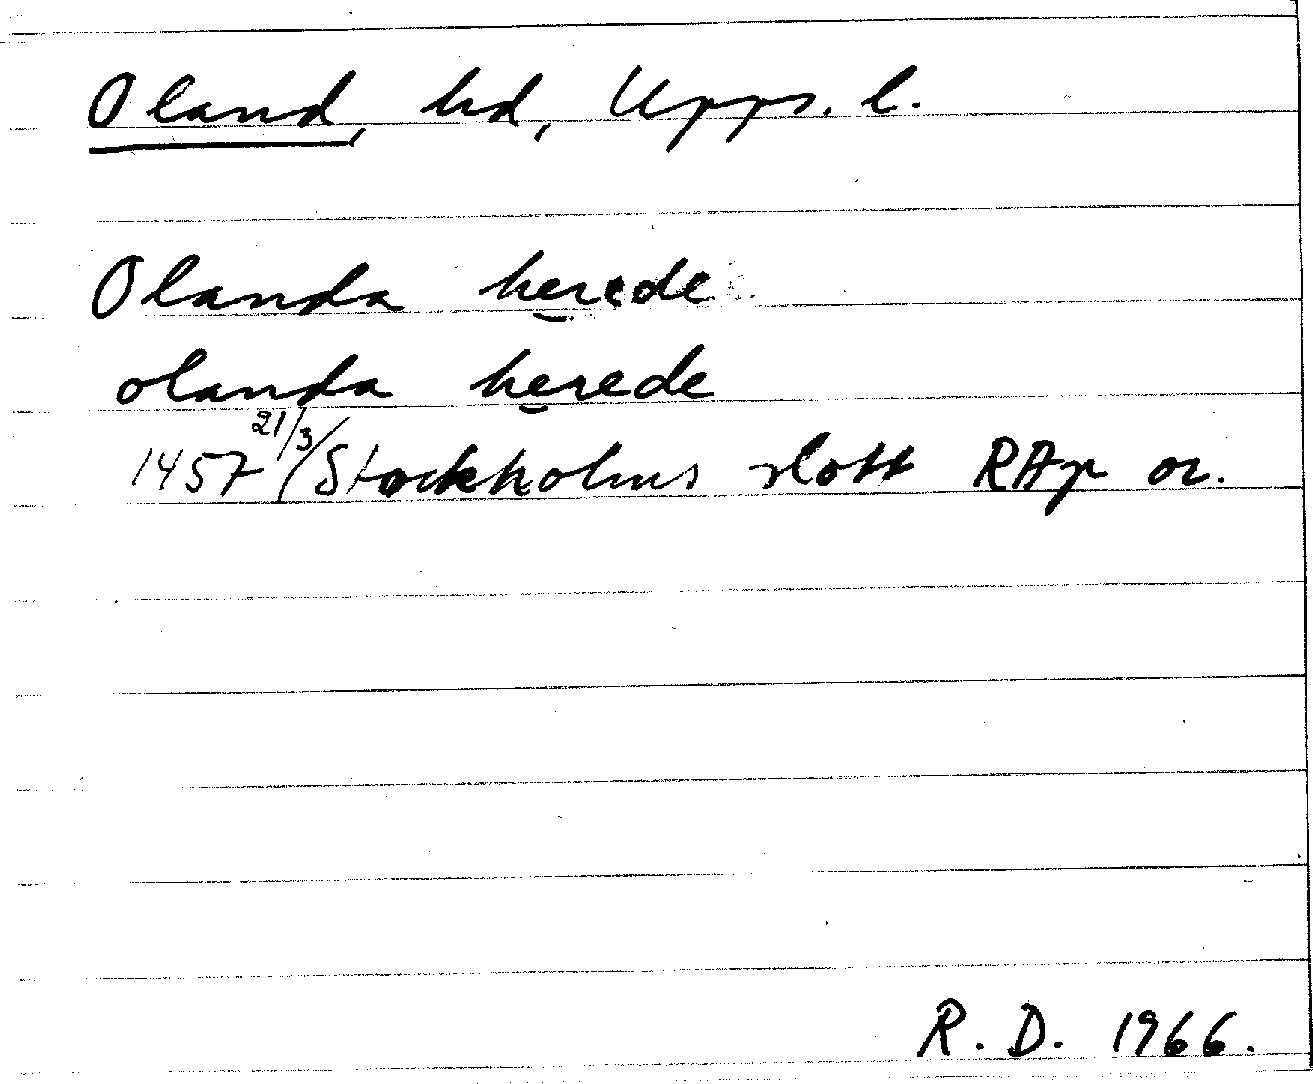 Oland, hd, Upps. l.
Olanda herede
olanda herede
1457 21/3 (Stockholms slott RAp or.
R. D. 1966.